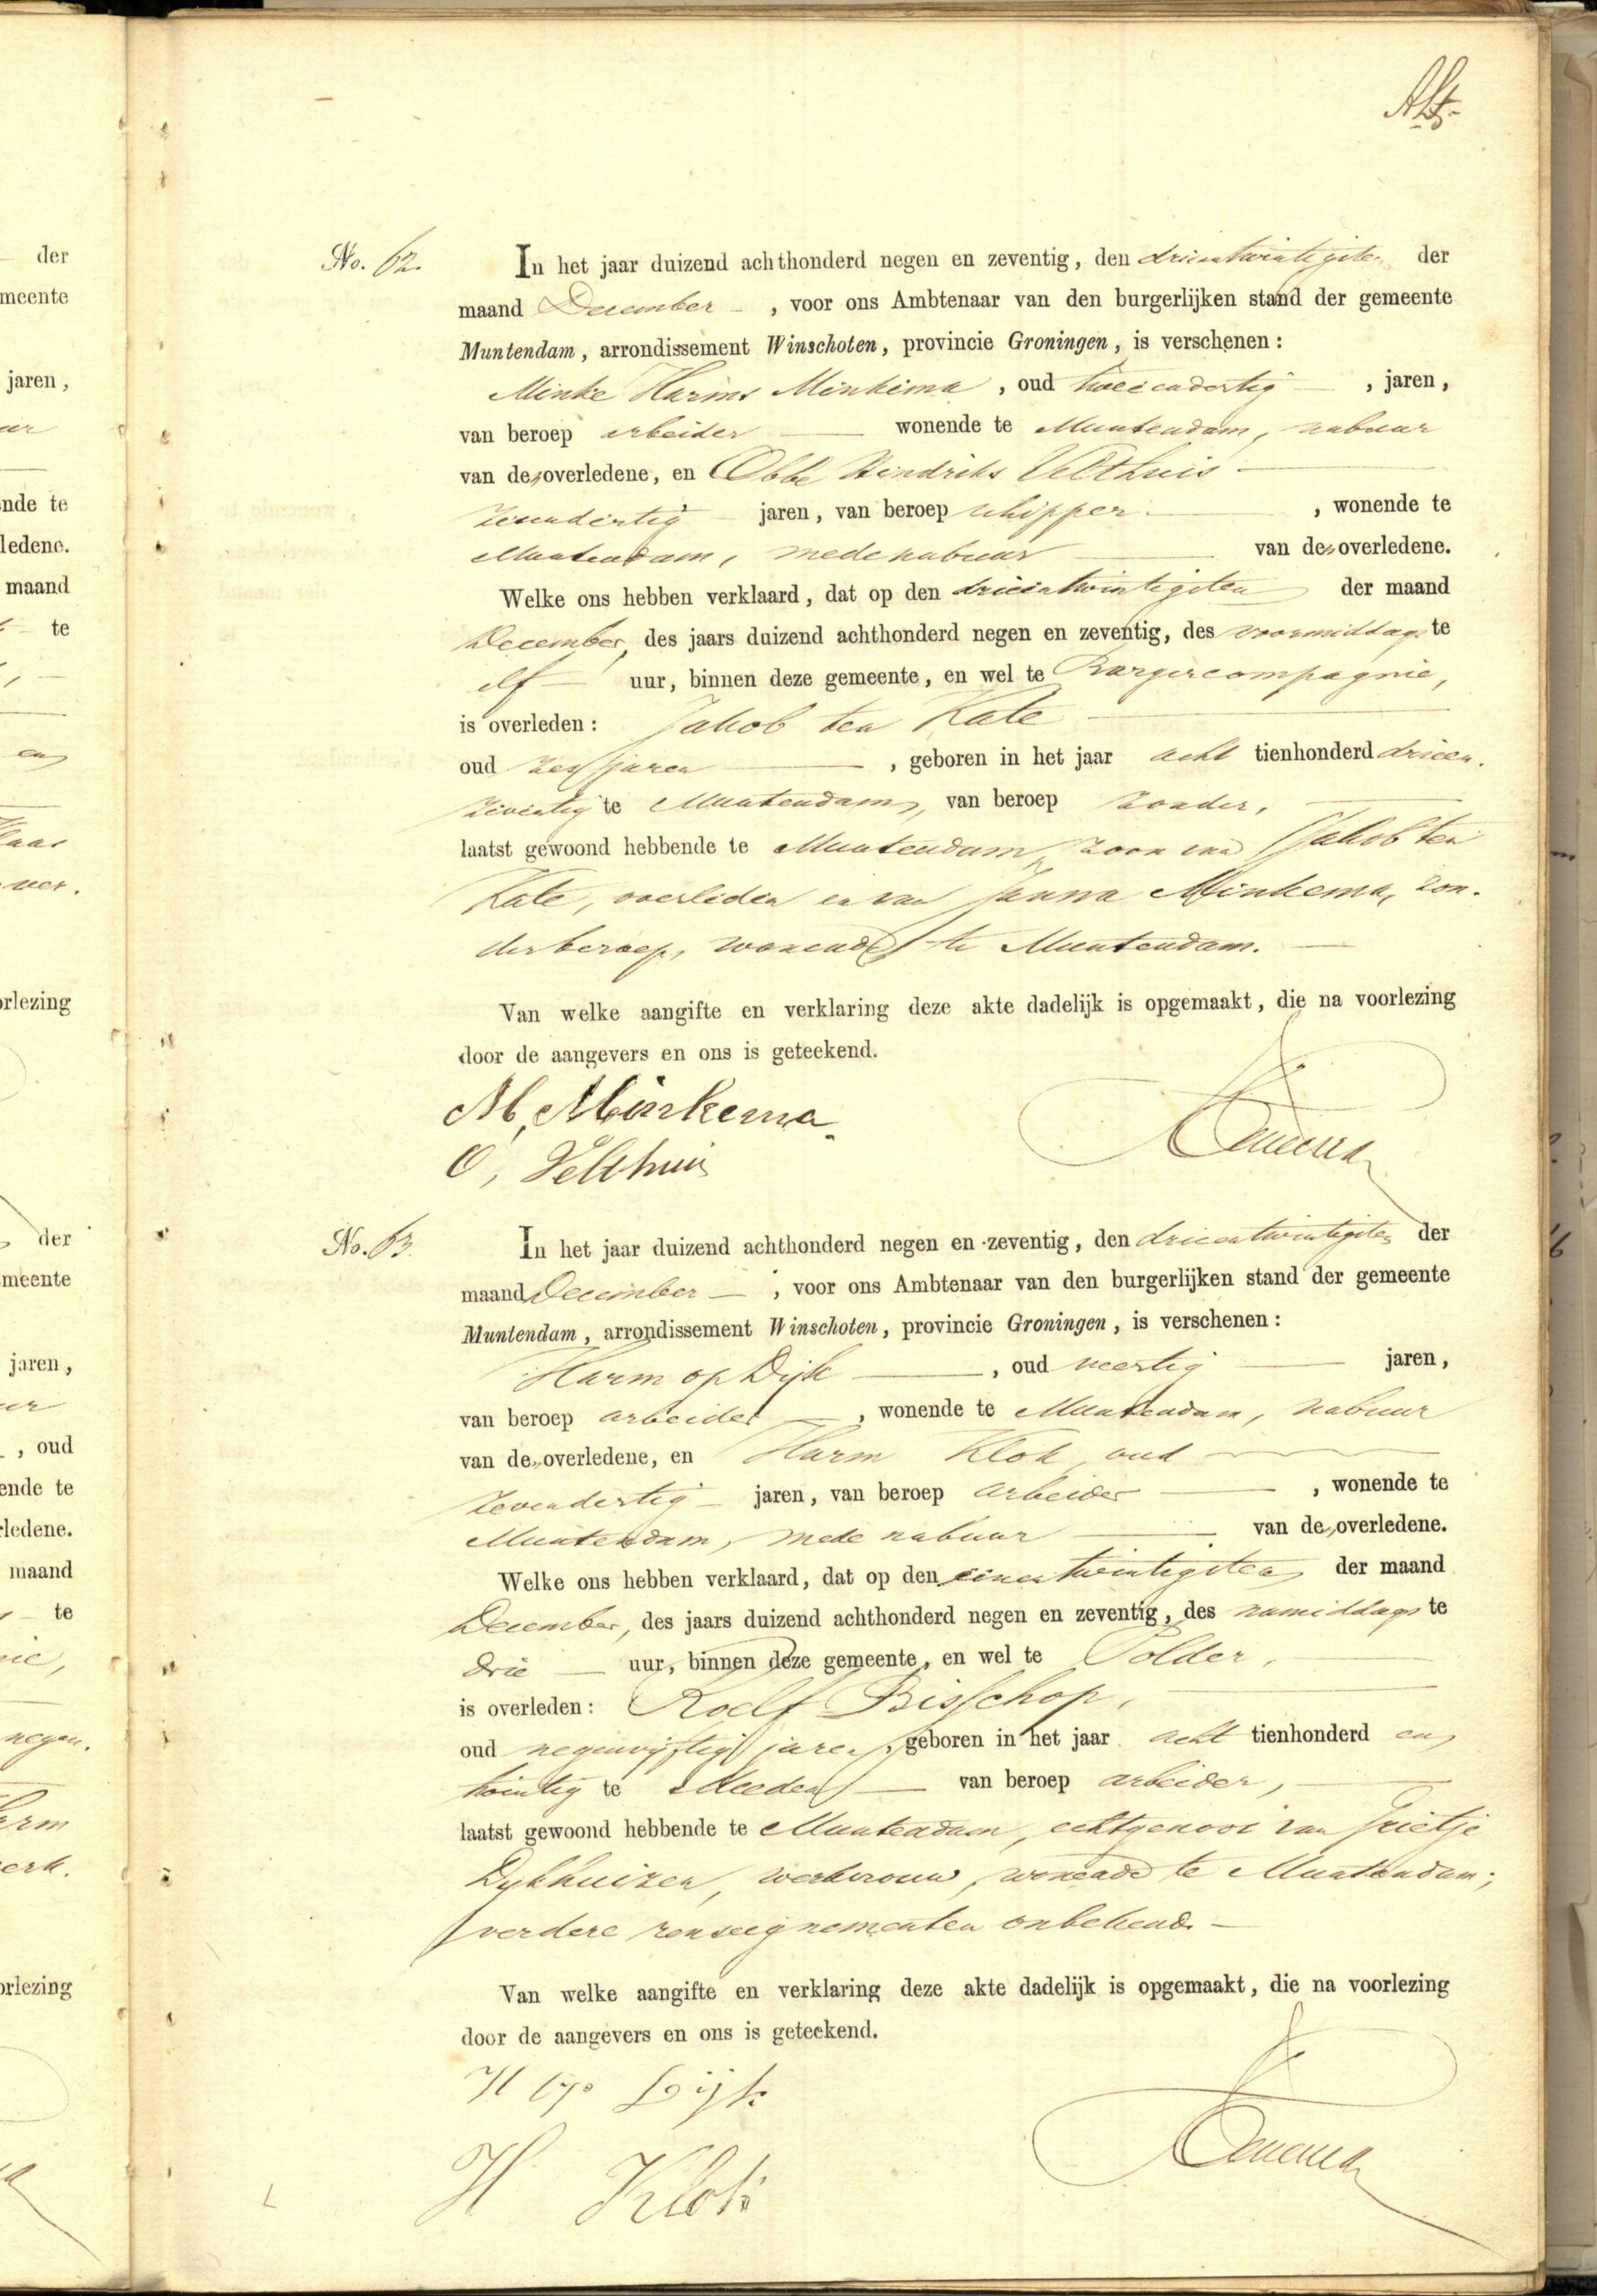 No. 62. In het jaar duizend achthonderd negen en zeventig, den drieentwintigsten der
maand December, voor ons Ambtenaar van den burgerlijken stand der gemeente
Muntendam, arrondissement Winschoten, provincie Groningen, is verschenen:
Minke Harms Minkema, oud tweeendertig, jaren,
van beroep arbeider wonende te Muntendam, nabuur
van den overledene, en Obbe Hindriks Velthuis
jaren, van beroep schipper, wonende te
Muntendam, mede nabuur van den overledene.
Welke ons hebben verklaard, dat op den drieentwintigsten der maand
December, des jaars duizend achthonderd negen en zeventig, des voormiddags te
elf uur, binnen deze gemeente, en wel te Borgercompagnie,
is overleden: Jakob ten Kate
oud zes jaren, geboren in het jaar acht tienhonderd drieen-
zeventig te Muntendam, van beroep zonder,
laatst gewoond hebbende te Muntendam, zoon van Jakob ten
Kate, overleden en van Janna Minkema, zon-
der beroep, wonende te Muntendam.
Van welke aangifte en verklaring deze akte dadelijk is opgemaakt, die na voorlezing
door de aangevers en ons is geteekend.
M, Minkema
O, Velthuis
No. 63. In het jaar duizend achthonderd negen en zeventig, den drieentwintigsten der
maand December, voor ons Ambtenaar van den burgerlijken stand der gemeente
Muntendam, arrondissement Winschoten, provincie Groningen, is verschenen:
Harm op Dijk, oud veertig jaren,
van beroep arbeider, wonende te Muntendam, nabuur
van den overledene, en Harm Klok, oud
zevendertig jaren, van beroep arbeider, wonende te
Muntendam, mede nabuur van den overledene.
Welke ons hebben verklaard, dat op den eenentwintigsten der maand
December, des jaars duizend achthonderd negen en zeventig, des namiddags te
drie uur, binnen deze gemeente, en wel te Polder,
is overleden: Roelf Bisschop,
oud negenvijftig jaren, geboren in het jaar acht tienhonderd en
twintig te Meeden van beroep arbeider,
laatst gewoond hebbende te Muntendam, echtgenoot van Grietje
Dykhuizen, werkvrouw, wonende te Muntendam;
verdere renseignementen onbekend.
Van welke aangifte en verklaring deze akte dadelijk is opgemaakt, die na voorlezing
door de aangevers en ons is geteekend.
H op Dijk
H Klok